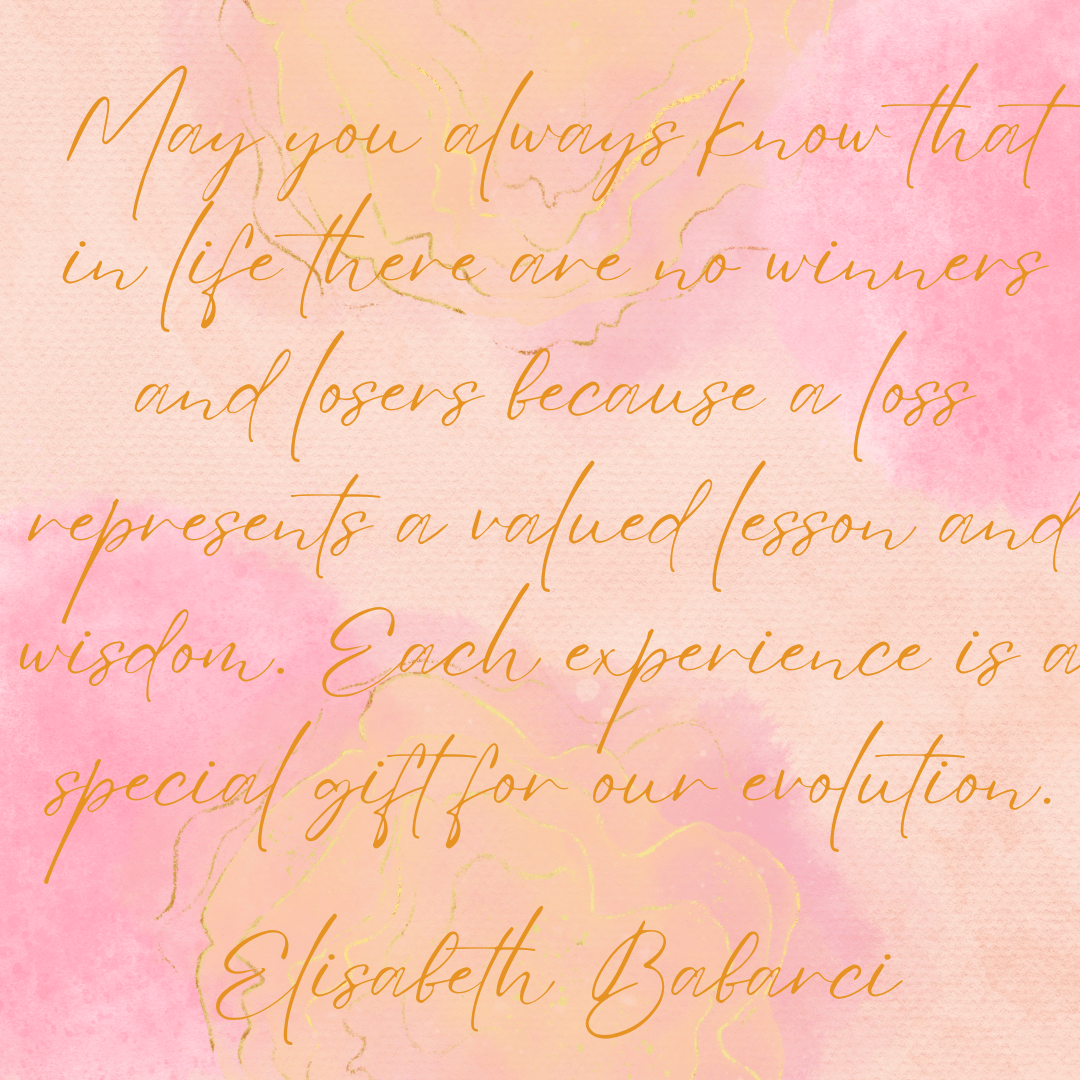 May you always know that
in life there are no winners
and losers because a loss
represents a valued lesson and
wisdom. Each experience is a
special gift for our evolution.
Elisabeth Babarci